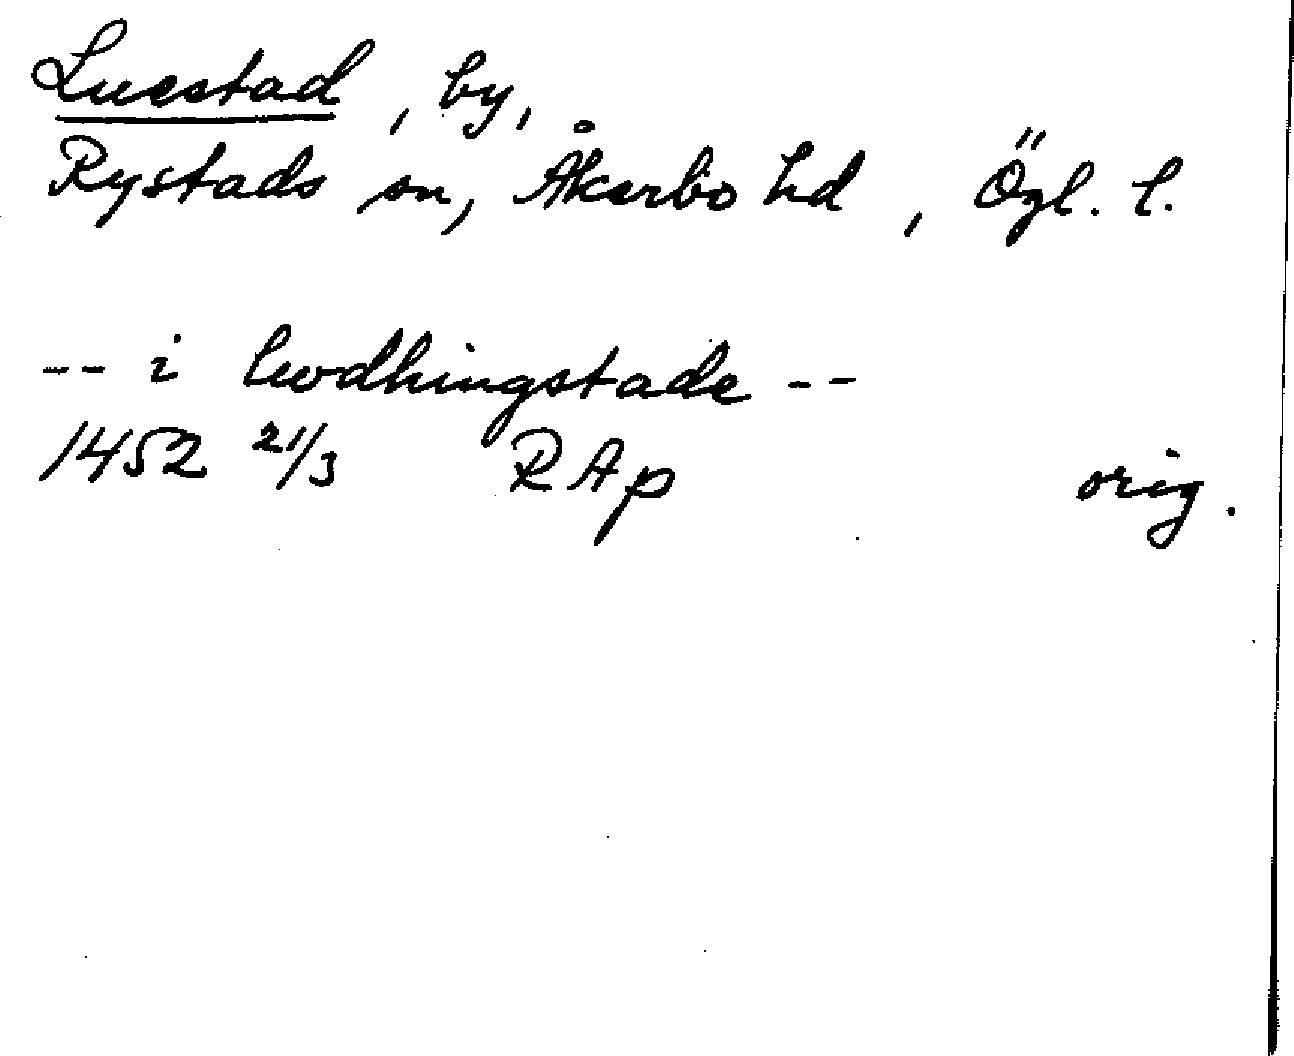 Lucstad, by,
Rystads sn, Åkerbo hd, Ögl. l.
-- i lwdhingstade --
1452 21/3 RAp orig.